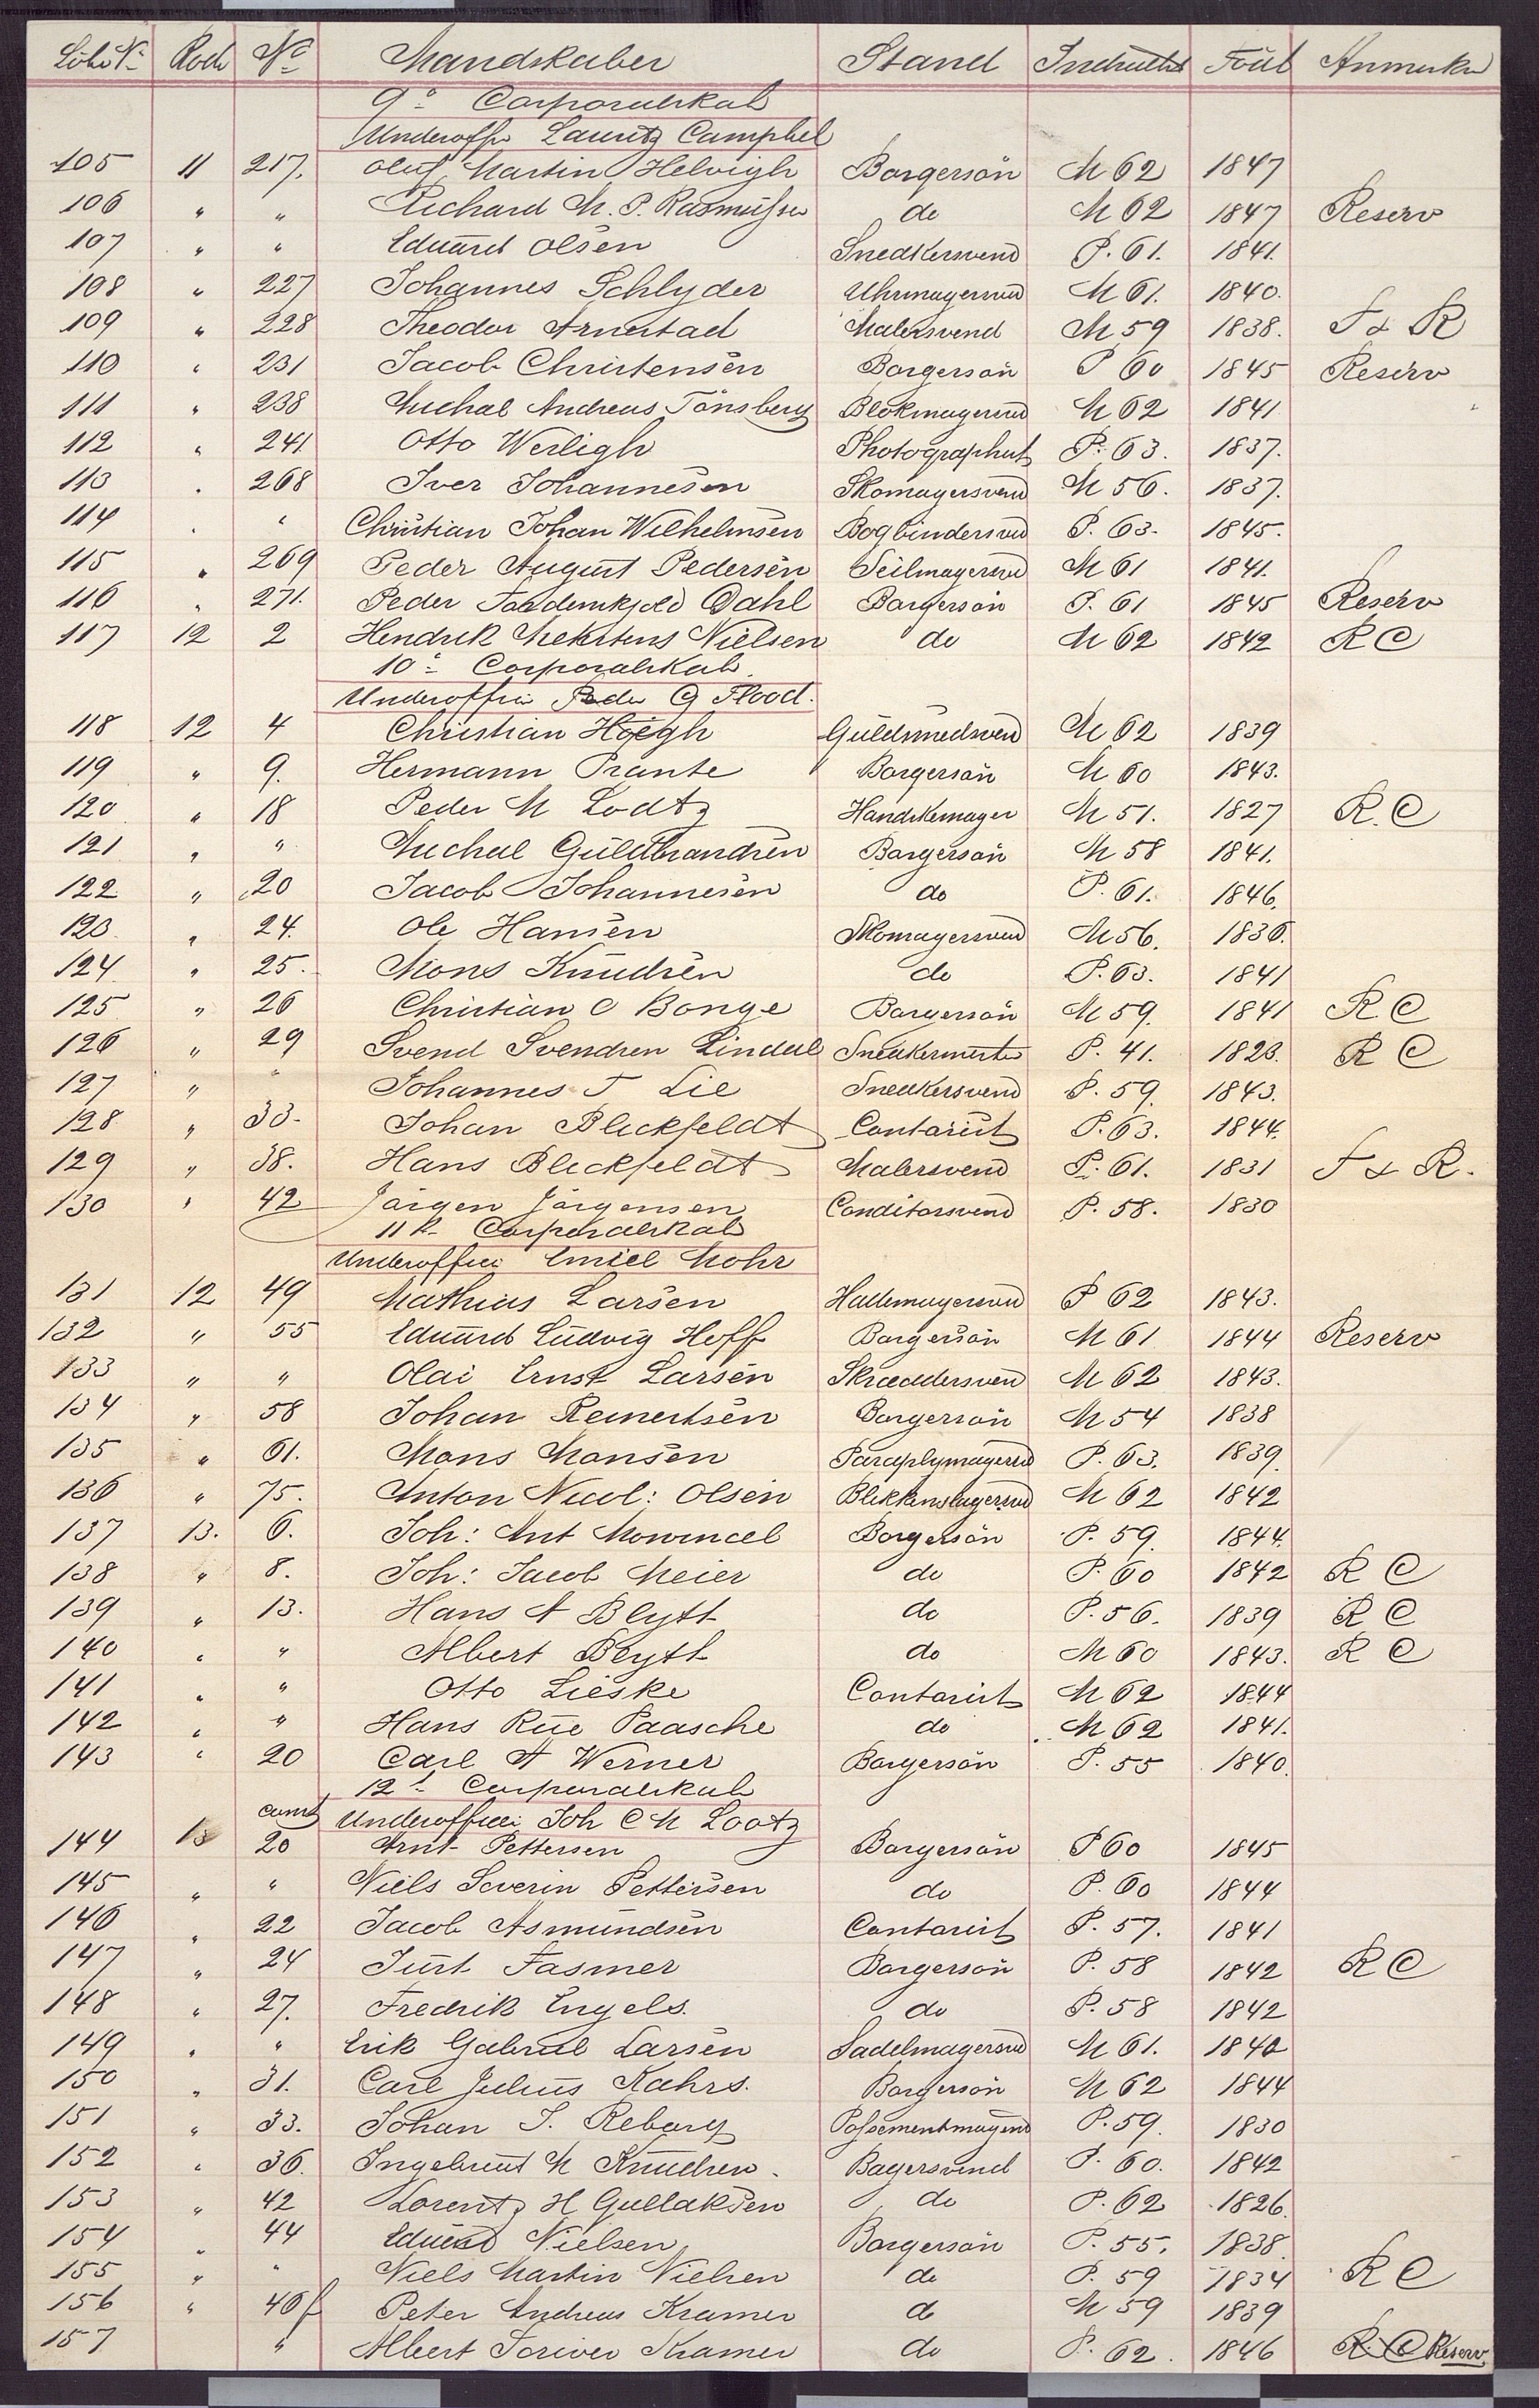 Löbe No Rode No Mandskaber Stand Indrulld Född Anmerkn
9de Corporalskab
Underoffr Lauritz Campbel
105 11 217. Oluf Martin Helvigh Borgersön M 62 1847
106 " " Richard M. P. Rasmussen do M 62 1847 Reserv
107 " " Eduard Olsen Snedkersvend P. 61. 1841.
108 " 227 Johannes Schlyder Uhrmagersvd M 61. 1840.
109 " 228 Theodor Arnestad Malersvend M 59 1838. F & R
110 " 231 Jacob Christensen Borgersön P 60 1845 Reserv
111 " 238 Michal Andreas Tönsberg Blokmagersvd M 62 1841
112 " 241. Otto Werligh Photographist P. 63. 1837.
113 " 268 Iver Johannesen Skomagersvend M 56. 1837.
114 " " Christian Johan Wilhelmsen Bogbindersvd P. 63. 1845.
115 " 269 Peder August Pedersen Seilmagersvd M 61 1841.
116 " 271. Peder Dahl Borgersön P. 61 1845 Reserv
117 12 2 Hendrik Mekstens Nielsen do M 62 1842 R C
10de Corporalskab
Underoffici Peder G Flood.
118 12 4 Christian Höegh Guldsmedsvend M 62 1839
119 " 9. Hermann Prante Borgersön M 60 1843.
120 " 18 Peder M Lodtz Handskemager M 51. 1827 R. C
121 " " Michal Guldbrandsen Borgersön M 58 1841.
122 " 20 Jacob Johannesen do P. 61. 1846.
123 " 24. Ole Hansen Skomagersvend M 56. 1836.
124 " 25. Mons Knudsen do P. 63. 1841
125 " 26 Christian C Bonge Borgersön M 59. 1841 R C
126 " 29 Svend Svendsen Lindal Snedkermester P. 41. 1823. R C
127 " " Johannes T Lie Snedkersvend P. 59. 1843.
128 " 33. Johan Bleckfeldt Contorist P. 63. 1844.
129 " 38. Hans Bleckfeldt Malersvend P. 61. 1831 F & R.
130 " 42 Jörgen Jörgensen Conditorsvend P. 58. 1830
11te Corporalskab
Underoffici Emiel Mohr
131 12 49 Mathias Larsen Hattemagersvd P 62 1843.
132 " 55 Eduard Ludvig Hoff Borgersön M 61 1844 Reserv
133 " " Olai Ernst Larsen Skræddersvend M 62 1843.
134 " 58 Johan Reinertsen Borgersön M 54 1838
135 " 61. Mons Monsen Paraplymagersvd P. 63. 1839.
136 " 75. Anton Nicol: Olsen Blikkenslagersvd M 62 1842
137 13. 6. Joh: Ant Mowincel Borgersön P. 59. 1844.
138 " 8. Joh: Jacob Meier do P. 60 1842 R C
139 " 13. Hans A Blytt do P. 56. 1839 R C
140 " " Albert Blytt do M 60 1843. R C
141 " " Otto Lieske Contorist M 62 1844
142 " " Hans Rue Paasche do M 62 1841.
143 " 20 Carl A Werner Borgersön P. 55 1840.
12te Corporalskab
Underoffici Joh C M Lootz
144 13 20 Arnt Pettersen Borgersön P 60 1845
145 " " Niels Severin Pettersen do P. 60 1844
146 " 22 Jacob Asmundsen Contorist P. 57. 1841
147 " 24 Just Fasmer Borgersön P. 58 1842 R C
148 " 27. Fredrik Engels. do P. 58 1842
149 " " Erik Gabriel Larsen Sadelmagersvd M 61. 1840
150 " 31. Carl Julius Kahrs. Borgersön M 62 1844
151 " 33. Johan J. Reborg P. 59. 1830
152 " 36. Ingebrigt M Knudsen. Bagersvend P. 60. 1842
153 " 42 Lorentz H Gullaksen do P. 62 1826.
154 " 44 Eduard Nielsen Borgersön P. 55. 1838.
155 " " Niels Martin Nielsen do P. 59 1834 R C
156 " 46 f Peter Andreas Kramer do M 59 1839
157 " Albert Scriver Kramer do P. 62. 1846 R. C Reserv